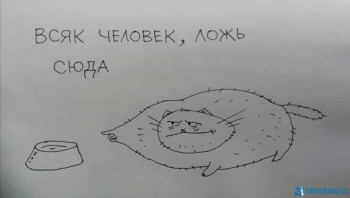 ВСЯК ЧЕЛОВЕК, ЛОЖЬ
СЮДА